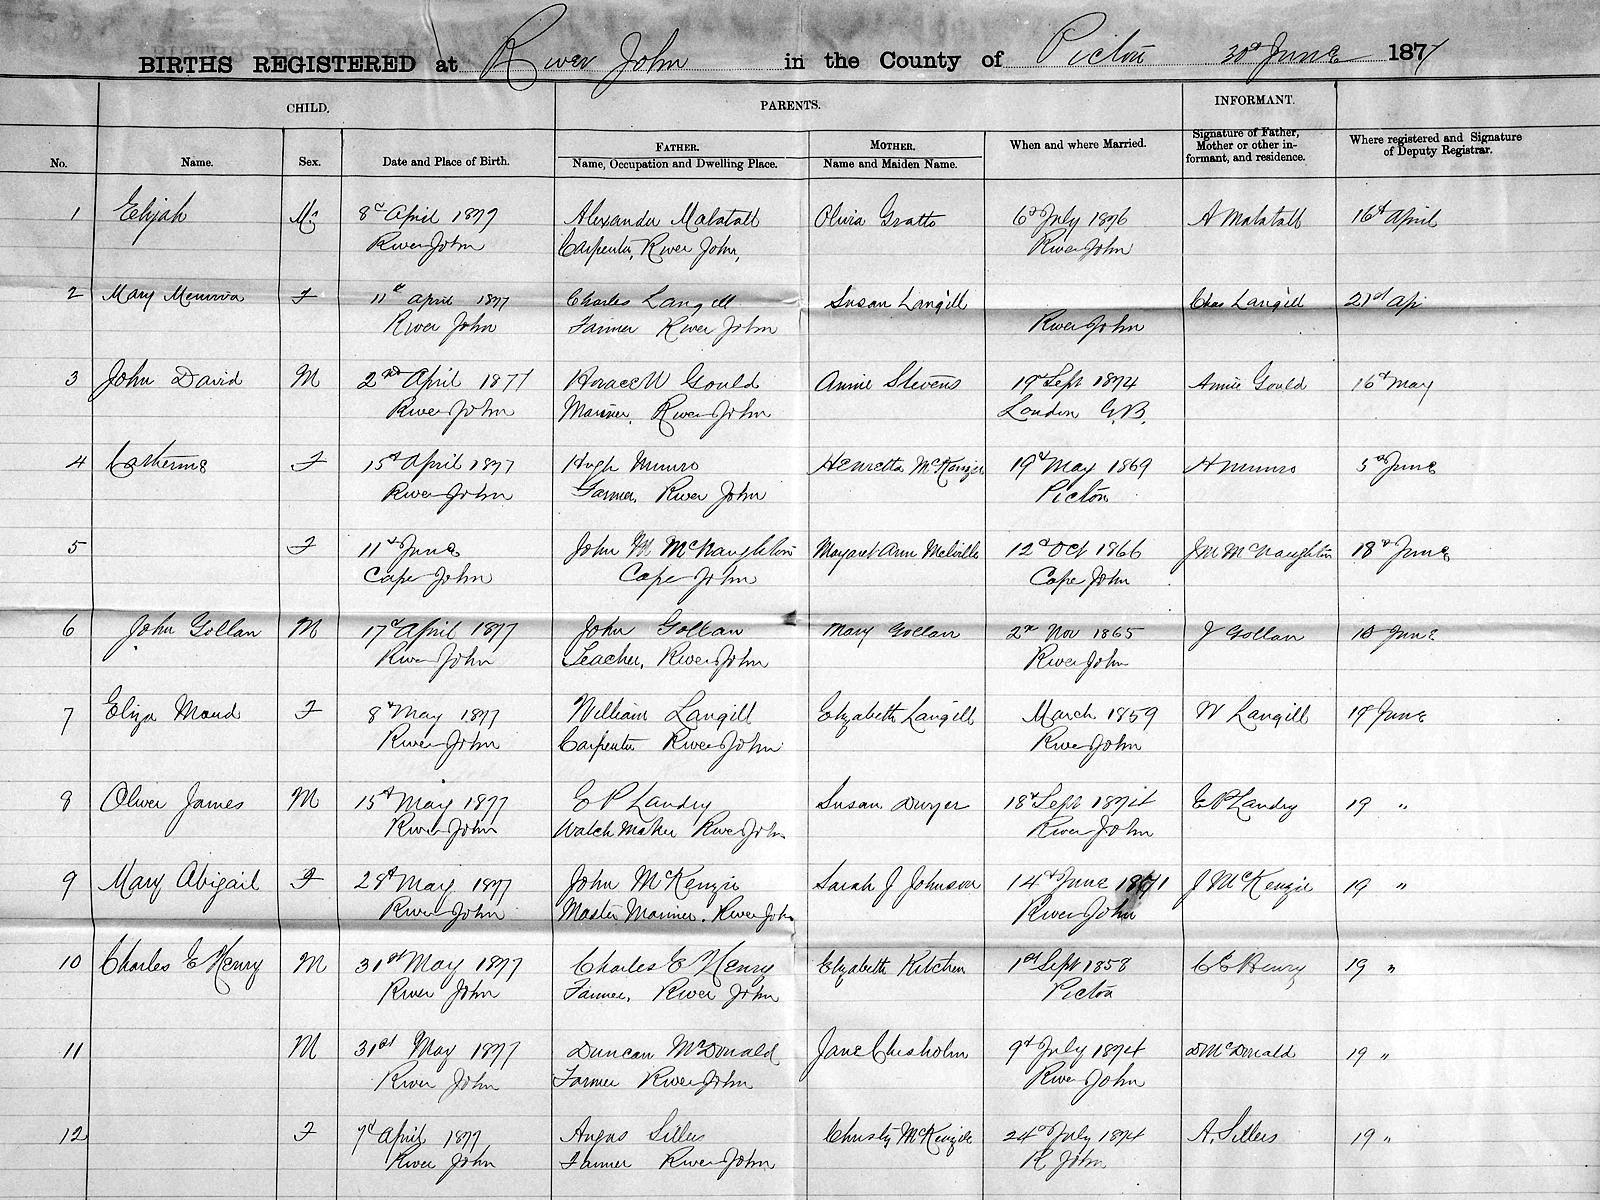 BIRTHS REGISTERED at River John in the County of Pictou 30th June 1877
CHILD. PARENTS. INFORMANT.
No. Name. Sex. Date and Place of Birth. FATHER. Name, Occupation and Dwelling Place. MOTHER. Name and Maiden Name. When and where Married. Signature of Father, Mother or other informant, and residence. Where registered and Signature of Deputy Registrar.
1 Elijah M. 8th April 1877 Alexander Malatall Olivia Gratto 6th July 1876 A Malatall 16th April
River John Carpenter, River John, River John
2 Mary F 11th April 1877 Charles Langill Susan Langill Chas Langill 21st Ap
River John Farmer River John River John
3 John David M 2nd April 1877 Horace W Gould Annie Stevens 19th Sept 1874 Annie Gould 16th May
River John Mariner, River John London G.B.
4 Catherine F 15th April 1877 Hugh Munro Henretta McKenzie 19th May 1869 H Munro 5th June
River John Farmer, River John Pictou
5 F 11th June John M McNaughton Margaret Ann Melville 12th Oct 1866 J M McNaughton 18th June
Cape John Cape John Cape John
6 John Gollan M 17th April 1877 John Gollan Mary Gollan 2nd Nov 1865 J Gollan June
River John Teacher, River John River John
7 Eliza Maud F 8th May 1877 William Langill Elizabeth Langill March 1859 W Langill 19th June
River John Carpenter River John River John
8 Oliver James M 15th May 1877 E P Landry Susan Dwyer 18th Sept 1874 E P Landry 19 "
River John Watch Maker River John River John
9 Mary Abigail F 28th May 1877 John McKenzie Sarah J Johnson 14th June 1871 J McKenzie 19 "
River John Master Mariner, River John River John
10 Charles E Henry M 31st May 1877 Charles E Henry Elizabeth Kitchen 1st Sept 1858 C E Henry 19 "
River John Farmer, River John Pictou
11 M 31st May 1877 Duncan McDonald Jane Chisholm 9th July 1874 D McDonald 19 "
River John Farmer River John River John
12 F 7th April 1877 Angus Sillers Christy McKenzie 24th July 1874 A. Sillers 19 "
River John Farmer River John R John